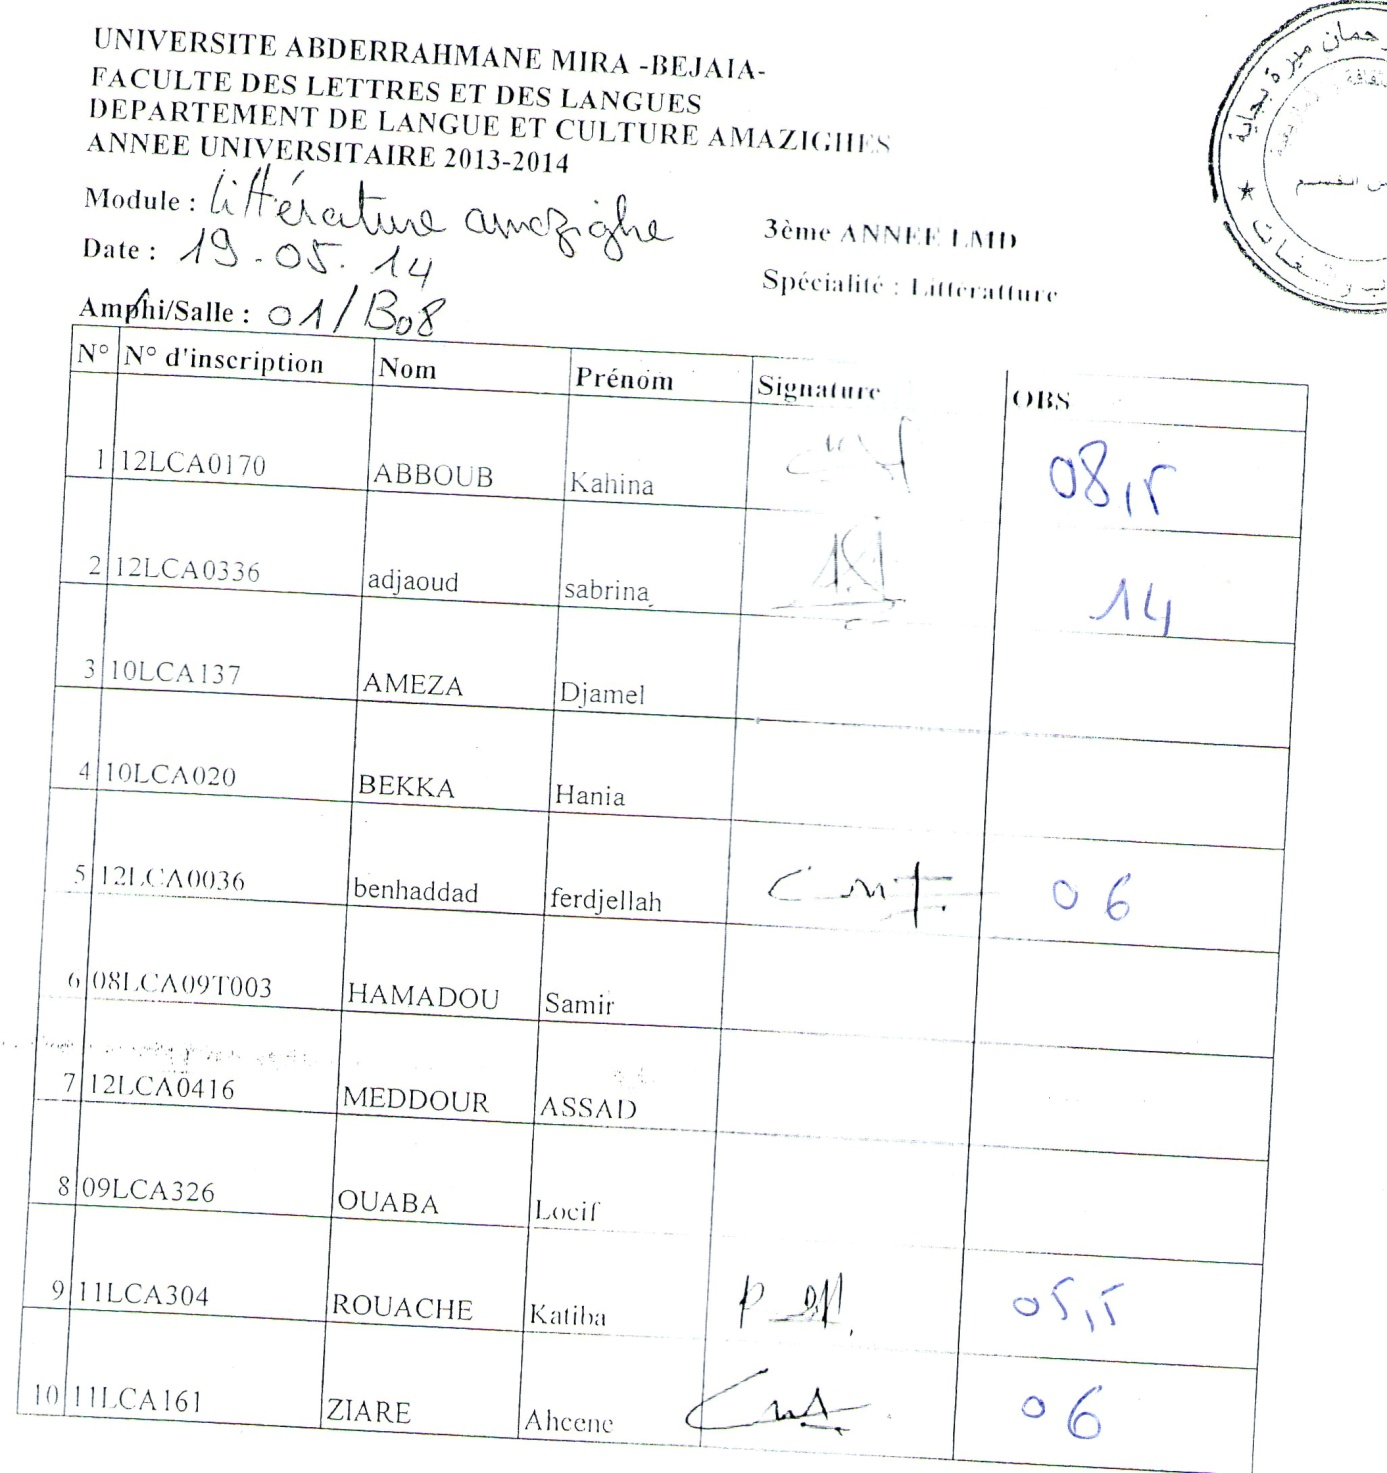 UNIVERSITE ABDERRAHMANE MIRA -BEJAIA-
FACULTE DES LETTRES ET DES LANGUES
DEPARTEMENT DE LANGUE ET CULTURE AMAZIGHES
ANNEE UNIVERSITAIRE 2013-2014
Module : Littérature amazighe
3ème ANNEE LMD
Date : 19.05.14
Spécialité : Litteratture
Amphi/Salle : 01/B08
N° N° d'inscription Nom Prénom Signature OBS
1 12LCA0170 ABBOUB Kahina 08,5
2 12LCA0336 adjaoud sabrina 14
3 10LCA137 AMEZA Djamel
4 10LCA020 BEKKA Hania
5 12LCA0036 benhaddad ferdjellah 06
6 08LCA09T003 HAMADOU Samir
7 12LCA0416 MEDDOUR ASSAD
8 09LCA326 OUABA Locif
9 11LCA304 ROUACHE Katiba 05,5
10 11LCA161 ZIARE Ahcene 06